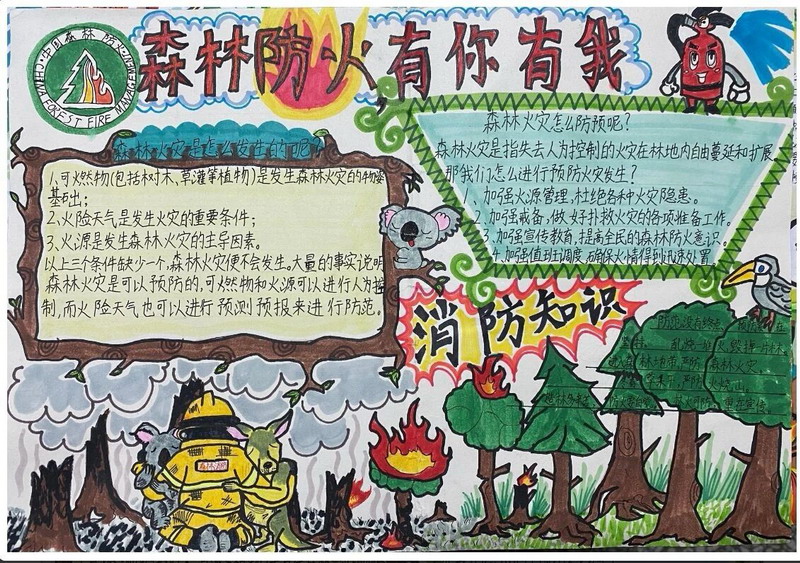 森林防火有你有我
中国森林防火
CHINA FOREST FIRE
森林火灾是怎么发生的呢?
1.可燃物(包括树木、草灌等植物)是发生森林火灾的物资
基础;
2、火险天气是发生火灾的重要条件;
3、火源是发生森林火灾的主导因素。
以上三个条件缺少一个,森林火灾便不会发生。大量的事实说明
森林火灾是可以预防的,可燃物和火源可以进行人为控
制,而火险天气也可以进行预测预报来进行防范。
森林火灾怎么防预呢?
森林火灾是指失去人为控制的火灾在林地内自由蔓延和扩展
那我们怎么进行预防火灾发生?
1、加强火源管理,杜绝各种火灾隐患。
2.加强戒备,做好扑救火灾的各项准备工作。
3.加强宣传教育,提高全民的森林防火意识。
4.加强值班调度,确保火情得到迅速处置
消防知识
防范没有终点
森林火灾